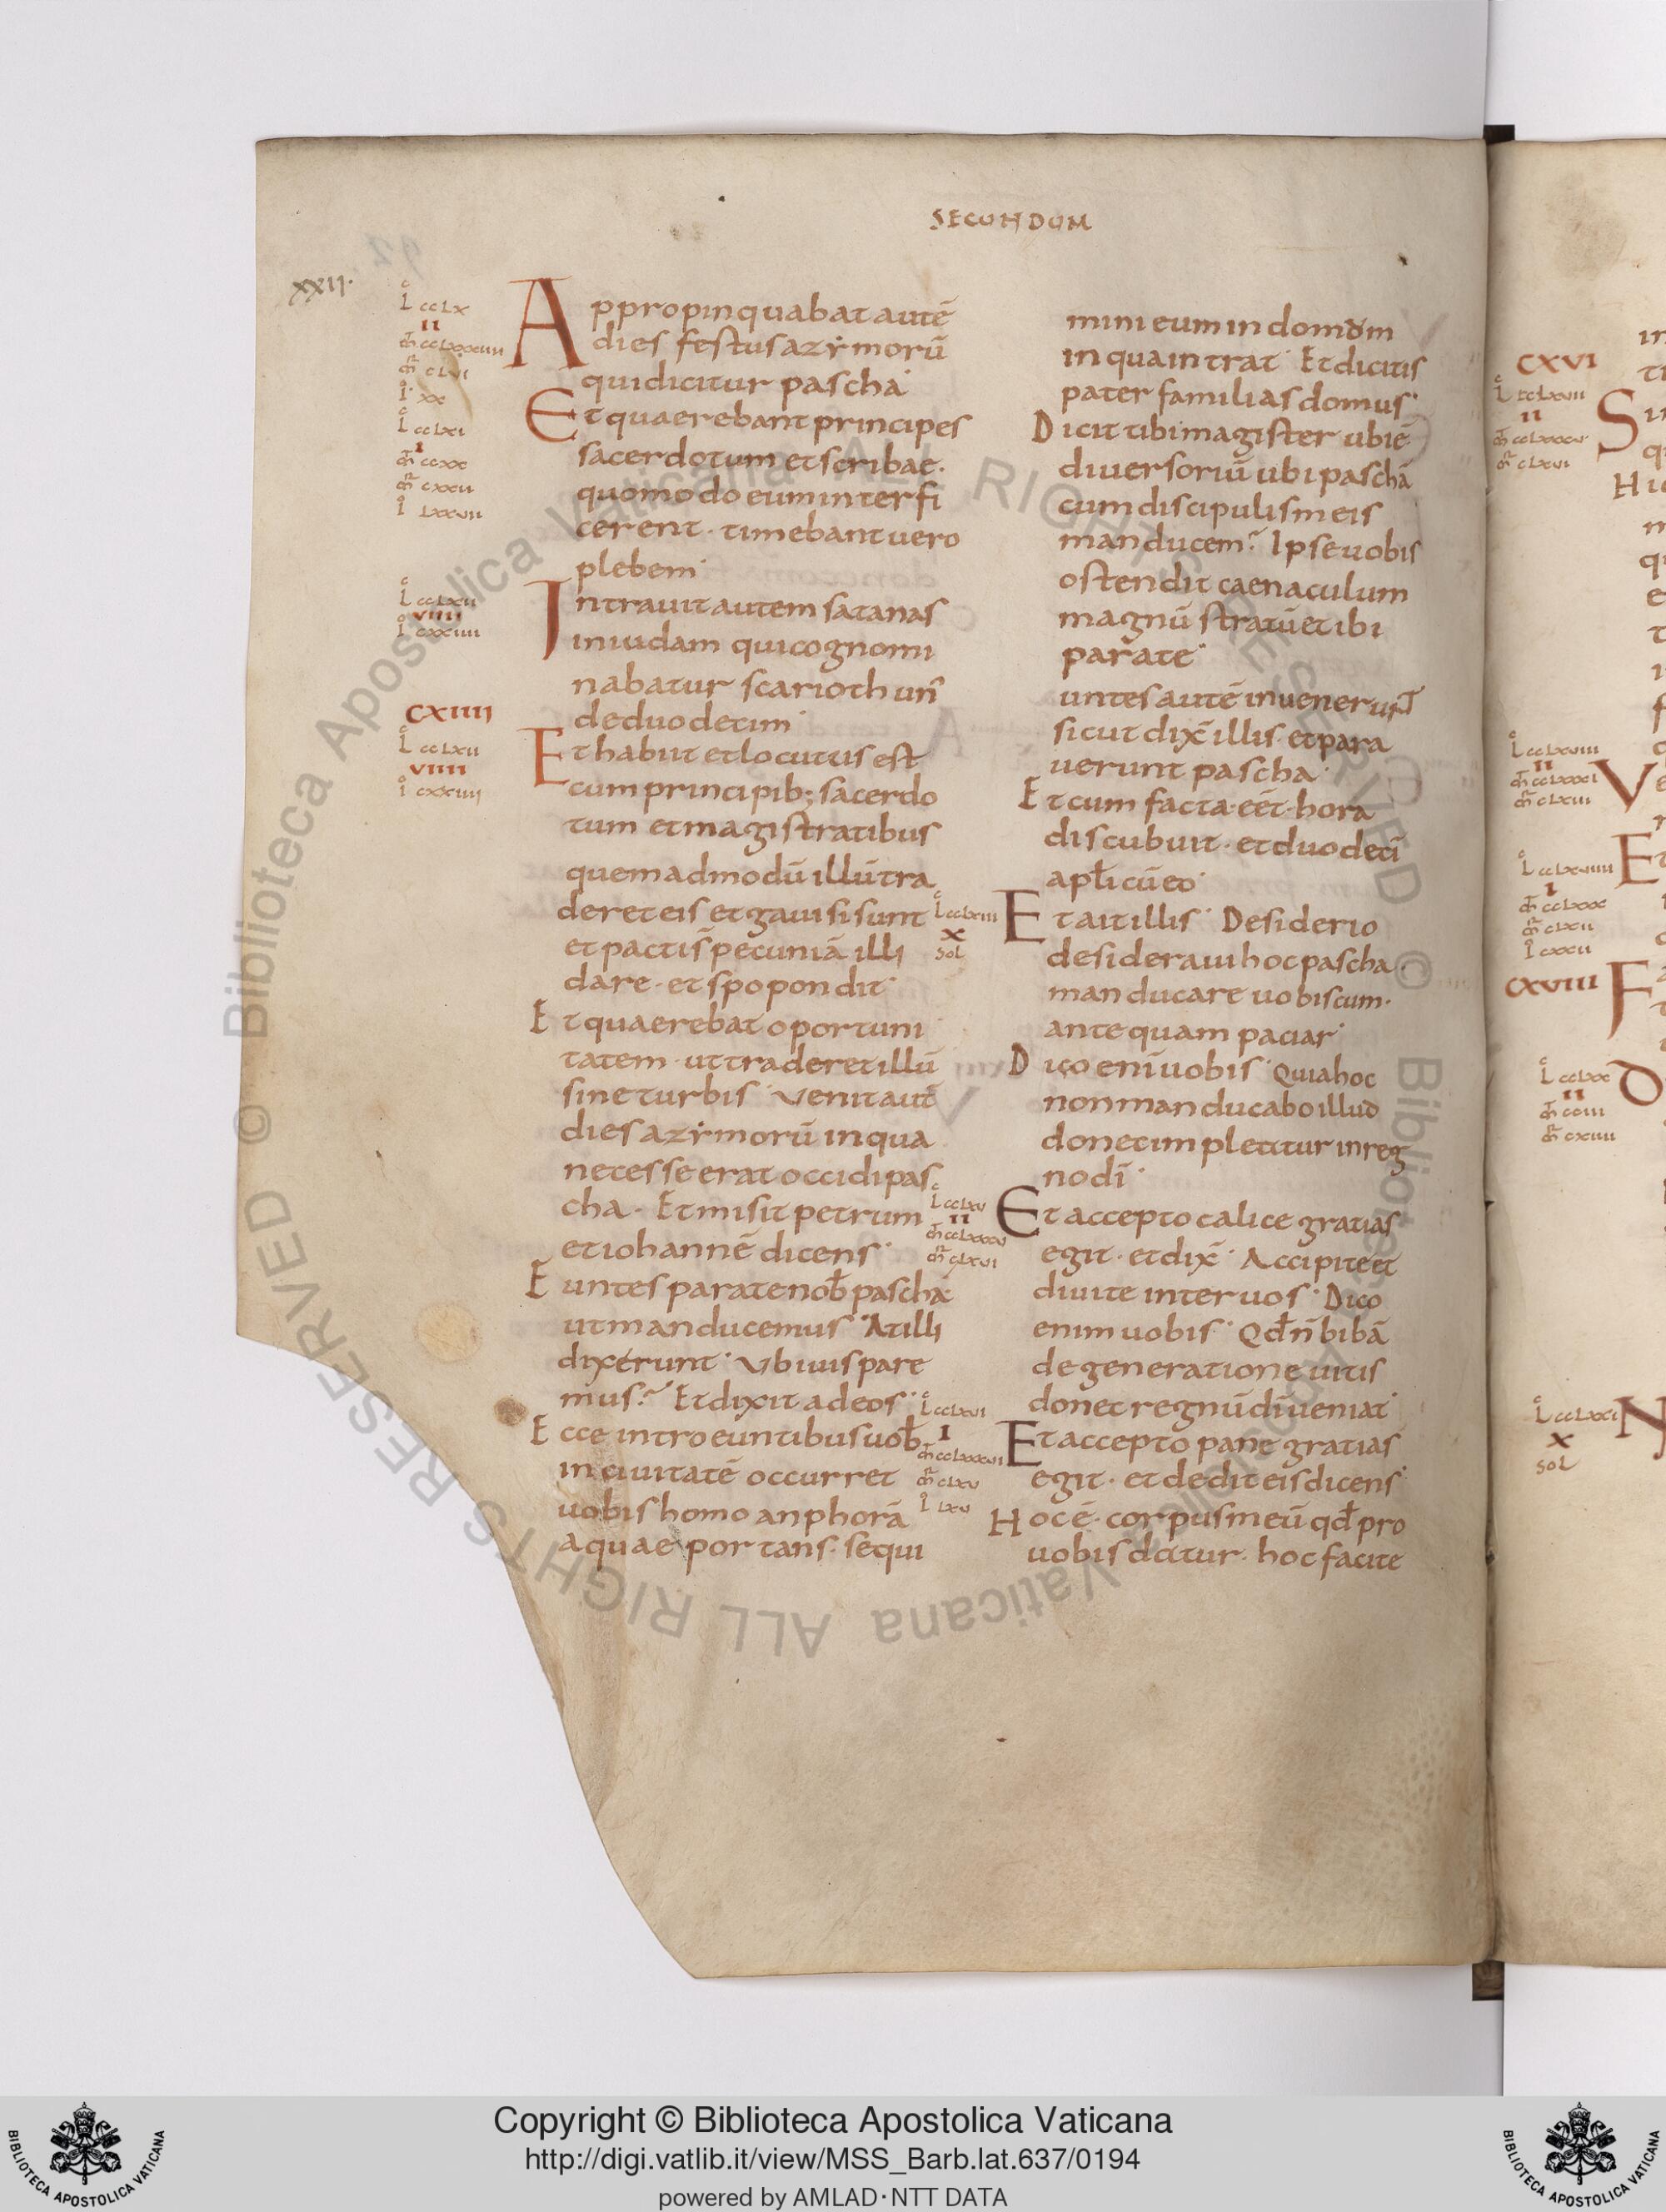 SECUNDUM
xxii.
Appropinquabat autē
dies festus azẏmorū
qui dicitur pascha
Et quaerebant principes
sacerdotum et scribae.
quomodo eum interfi
cerent. timebant uero
plebem
Intrauit autem satanas
in iudam qui cognomi
nabatur scarioth un̄
de duodecim
Et habiit et locutus est
cum principib; sacerdo
tum et magistratibus
quemadmodū illū tra
deret eis et gauisi sunt
et pacti s̄ pecuniā illi
dare. et spopondit
Et quaerebat oportuni
tatem. ut traderet illū
sine turbis. Venit aut̄
dies azẏmorū in qua
necesse erat occidi pas
cha. Et misit petrum
et iohannē dicens
Euntes parate nob̄ pascha
ut manducemus. At illi
dixerunt. Vbi uis pare
mus? Et dixit ad eos.
Ecce introeuntibus uob̄
in ciuitatē occurret
uobis homo anphorā
aquae portans. sequi
mini eum in domum
in qua intrat. Et dicitis
pater familias domus.
Dicit tibi magister ubi ē
diuersoriū ubi paschā
cum discipulis meis
manducem? Ipse uobis
ostendit caenaculum
magnū stratū et ibi
parate
untes autē inuenerunt
sicut dix̄ illis. et para
uerunt pascha
Et cum facta eēt hora
discubuit. et duodecī
apłi cū eo
Et ait illis. Desiderio
desideraui hoc pascha.
manducare uobiscum.
ante quam patiar
Dico enī uobis. Quia hoc
non manducabo illud
donec impleatur in reg
no dī
Et accepto calice gratias
egit. et dix̄. Accipite et
diuite inter uos. Dico
enim uobis. Qd̄ n̄ bibā
de generatione uitis
donec regnū dī ueniat
Et accepto pane gratias
egit. et dedit eis dicens
Hoc ē. corpus meū qd̄ pro
uobis datur. hoc facite
CXIIII
VIIII
CXVI
CXVIII
Copyright © Biblioteca Apostolica Vaticana
http://digi.vatlib.it/view/MSS_Barb.lat.637/0194
powered by AMLAD·NTT DATA
BIBLIOTECA APOSTOLICA VATICANA
BIBLIOTECA APOSTOLICA VATICANA
© Biblioteca Apostolica Vaticana ALL RIGHTS RESERVED © Biblioteca Apostolica Vaticana ALL RIGHTS RESERVED